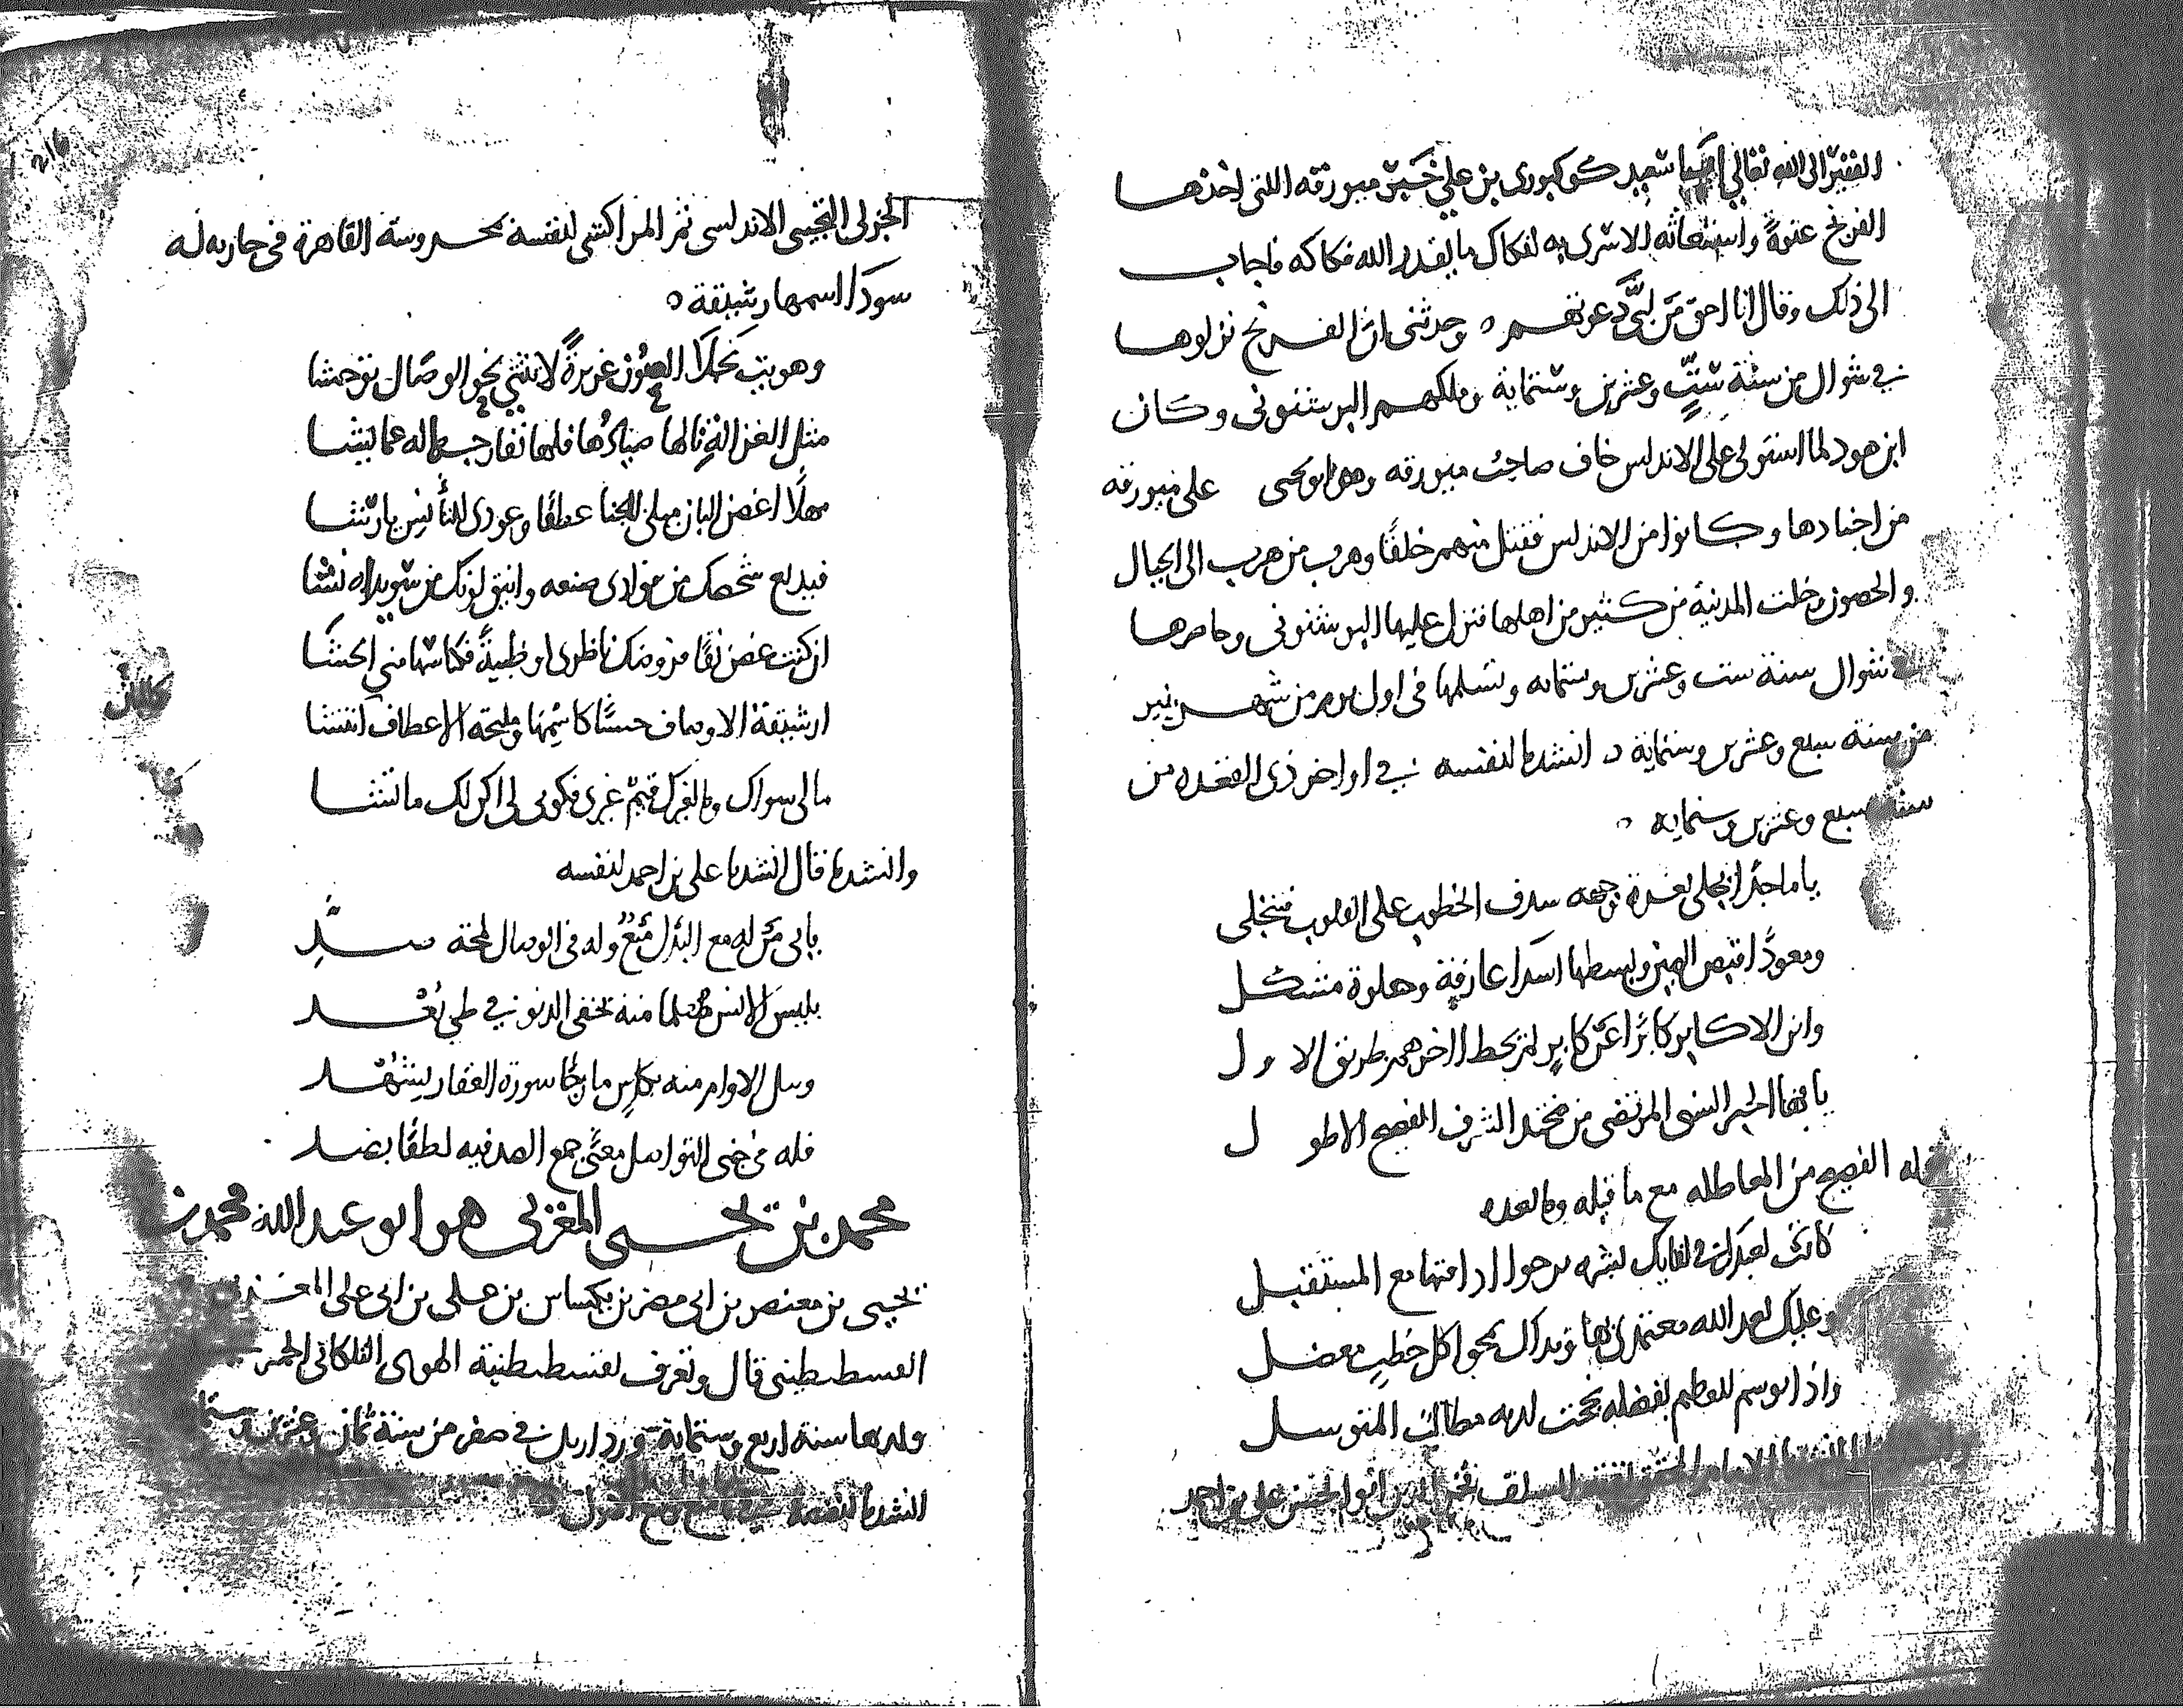 الفقير الى الله تعالى ابا سعيد كوكبوري بن علي خبر ميورقه اللتي اخذها
الفرنج عنوةً واستغاثه الاسرى به لفكاك ما يقدر الله فكاكه فاجاب
الى ذلك وقال انا احق من لبّى دعوتهم ٥ وحدثني ان الفرنج نزلوها
في شوال من سنة ستٍّ وعشرين وستماية وملكهم البرشنوني وكان
ابن هود لما استولى على الاندلس خاف صاحب ميورقه وهو ابو يحيى على ميورقه
من اجنادها وكانوا من الاندلس فقتل منهم خلقًا وهرب من هرب الى الجبال
والحصون وخلت المدينة من كثير من اهلها فنزل عليها البرشنوني وحاصرها
شوال سنة ست وعشرين وستمايه وتسلمها في اول يوم من شهر ينير
من سنة سبع وعشرين وستماية ٥ انشدنا لنفسه في اواخر ذي القعده من
سنة سبع وعشرين وستمايه ٥
يا ماجدًا يجلى بغرة وجهه سدف الخطوب على القلوب فتنجلى
ومعودًا قبض الهبر وبسطها اسدا عارفة وحلوة مشكل
وابن الاكابر كابرًا عن كابرٍ لم يحط اخرهم طريق الاول
يا ايها الحبر السنى المرتضى من محتد الشرف الفصيح الاطول
له الفصيح من المعاطله مع ما قبله وما بعده
كانت لعبدك في لقايك بشره يرجوا ادامتها مع المستقبل
وعليك بعد الله معتمدي بها ونداك يمحوا كل خطبٍ معضل
واذا توسم للعظيم بفضله نجحت لديه مطالب المتوسل
السلف فخر الدين ابو الحسن علي بن احمد
الجزلى التجيبى الاندلسى ثم المراكشى لنفسه بمحروسة القاهرة في جاريه له
سودَا اسمها رشيقة ٥
وهويت نجلا العيون غريرةً لا تنثني نحو الوصال توحشا
مثل الغزالة نالها صيادُها فلها نفار حيطاله عما يشا
مهلًا اغصن البان ميلى للجنا عطفًا وعودى للتأنس يا رشا
فبديع شخصك من موادي صنعه وانيق لونك من سويداه نشا
ان كنت غصن نقًا فروضك ناظرى او ظبيةً فكناسها مني الحشا
ارشيقة الاوصاف حسنًا كاسمها ومليحة الاعطاف انتشا
مالى سواك وما لغيرك قيمٌ غيري فكوني لي اكن لك ما تشا
وانشدنا قال انشدنا علي بن احمد لنفسه
بابى من له مع البذل منعٌ وله في الوصال لمحة صدِّ
يلبس الانس منه يخفى الدنو في طي بُعد
وسل الاوام منه بكاسٍ مازجًا سورة العقار بشهد
فله في جنى التواصل معنًى جمع الصد فيه لطفًا بضد
محمد بن يحيى المغربي هو ابو عبد الله محمد بن
يحيى بن معنصر بن ابي مضر بن يكيساس بن علي بن ابي علي المغربي
القسطيطيني قال وتعرف بقسطيطنية الهوى الفلكاني
ولد بها سنة اربع وستماية ورد اربل في صفر من سنة ثمان وعشرين وستماية
انشدنا لنفسه